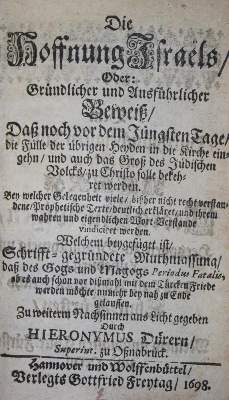 Die
Hoffnung Israels/
Oder:
Gründlicher und Ausführlicher
Beweiß/
Daß noch vor dem Jüngsten Tage/
die Fülle der übrigen Heyden in die Kirche ein-
gehn/ und auch das Groß des Jüdischen
Volcks/ zu Christo solle bekeh-
ret werden.
Bey welcher Gelegenheit viele/ bißher nicht recht verstan-
dene/ Prophetische Texte/ deutlich erkläret/ und ihrem
wahren und eigendlichen Wort-Verstande
vindiciret werden.
Welchem beygefüget ist/
Schrifft-gegründete Muthmassung/
daß des Gogs und Magogs Periodus Fatalis,
ob es auch schon vor dißmahl mit dem Türcken Friede
werden möchte/ nunmehr bey nah zu Ende
gelauffen.
Zu weiterm Nachsinnen ans Licht gegeben
Durch
HIERONYMUS Dürern/
Superint. zu Oßnabrück.
Hannover und Wolffenbüttel/
Verlegts Gottfried Freytag/ 1698.